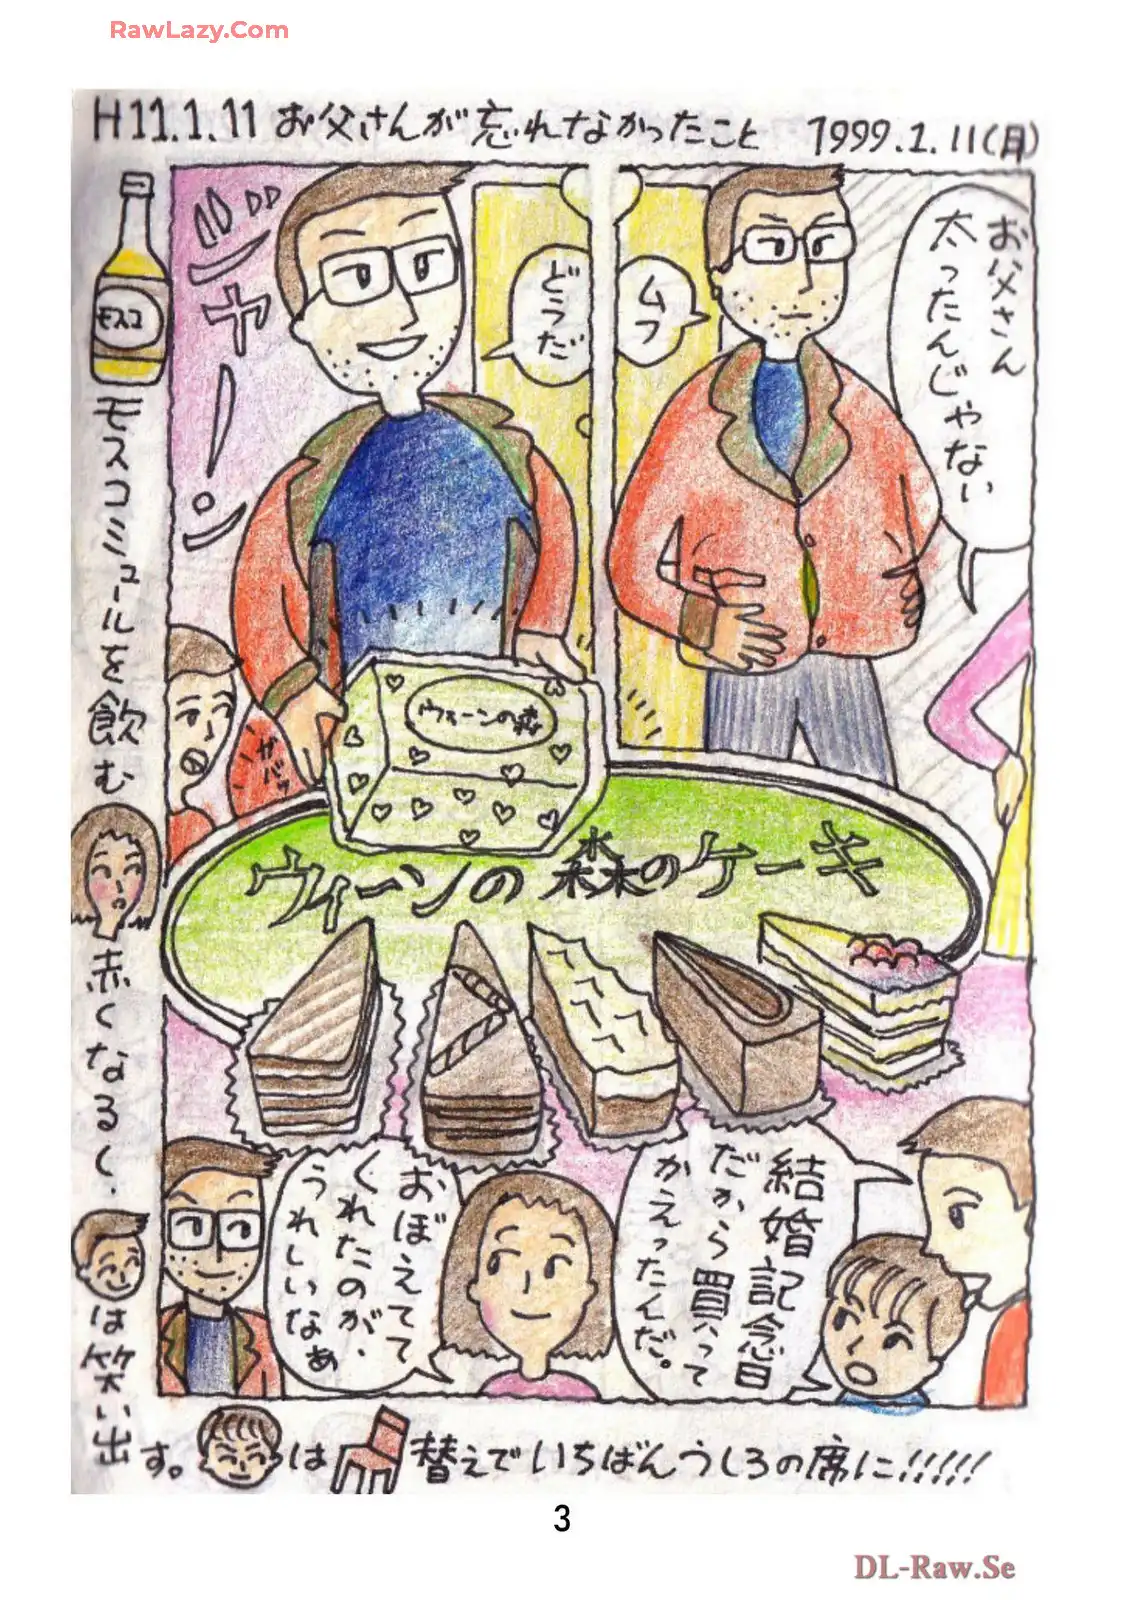 RawLazy.Com
H11.1.11 お父さんが忘れなかったこと 1999.1.11(月)
お父さん
太ったんじゃない
ムフ
どうだ
ジャーン
ウィーンの森
ガバッ
ウィーンの森のケーキ
結婚記念日
だから買って
かえったんだ。
おぼえてて
くれたのが、
うれしいなぁ
モスコ
モスコミュールを飲む
赤くなるく.
は笑い出
す。
は
替えでいちばんうしろの席に!!!!!
3
DL-Raw.Se